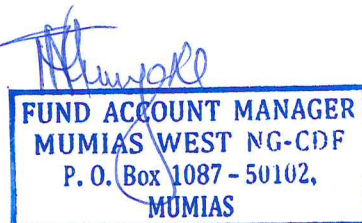 FUND ACCOUNT MANAGER
MUMIAS WEST NG-CDF
P. O. Box 1087 - 50102,
MUMIAS